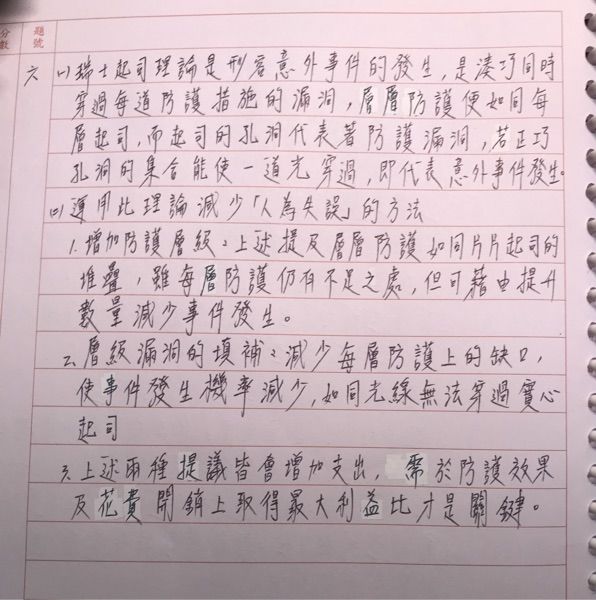 題號
分數
六 (一)瑞士起司理論是形容意外事件的發生,是湊巧同時
穿過每道防護措施的漏洞,層層防護便如同每
層起司,而起司的孔洞代表著防護漏洞,若正巧
孔洞的集合能使一道光穿過,即代表意外事件發生。
(二)運用此理論減少「人為失誤」的方法
1.增加防護層級:上述提及層層防護如同片片起司的
堆疊,雖每層防護仍有不足之處,但可藉由提升
數量減少事件發生。
2.層級漏洞的填補:減少每層防護上的缺口,
使事件發生機率減少,如同光線無法穿過實心
起司
3.上述兩種提議皆會增加支出,需於防護效果
及花費開銷上取得最大利益比才是關鍵。